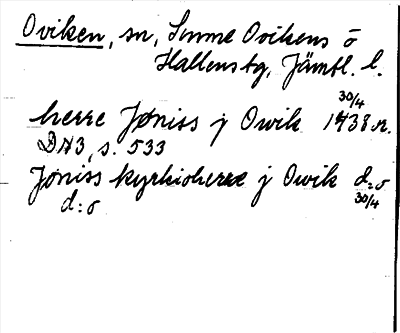 Oviken, sn, Sunne Ovikens o
Hallens tg, Jämtl. l.
herre Jøniss j Owik 1438 30/4 or.
DN3, s. 533
Jøniss kyrkioherre j Owik d:o 30/4
d:o